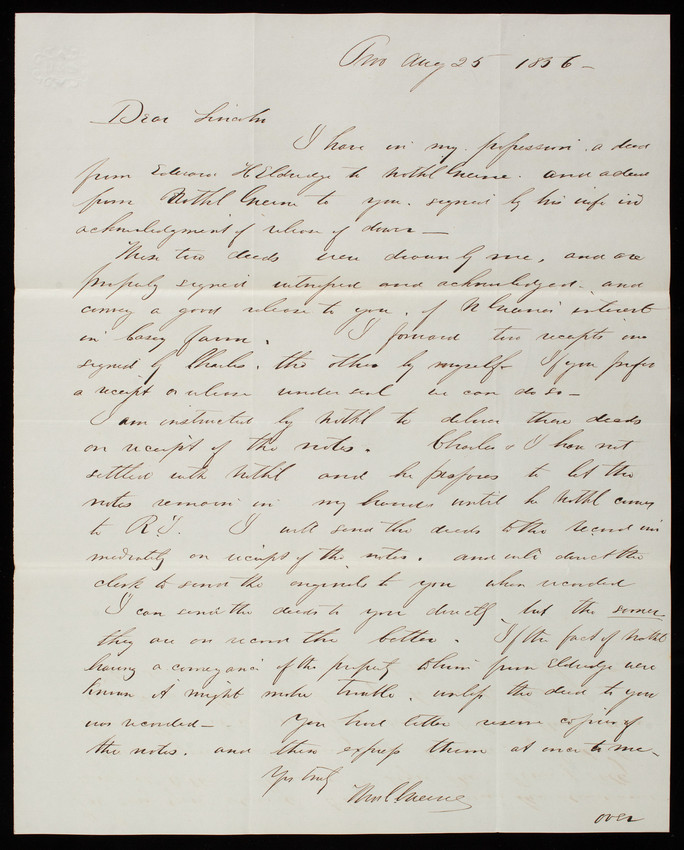 Prov Aug 25 1856 -
Dear Lincoln
I have in my possession a deed
from Edward H Eldredge to Nathl Greene. and a deed
from Nathl Greene to you. signed by his wife in
acknowledgment of release of dower -
These two deeds were drawn by me, and are
properly signed witnessed and acknowledged - and
convey a good release to you, of N Greenes interest
in Casey farm. I forward two receipts one
signed by Charles. the other by myself - If you prefer
a receipt or release under seal we can do so -
I am instructed by Nathl to deliver these deeds
on receipt of the notes. Charles & I have not
settled with Nathl and he proposes to let the
notes remain in my hands until he Nathl comes
to R I. I will send the deeds to the record im
mediately on receipt of the notes. and will direct the
clerk to send the originals to you when recorded
I can send the deeds to you directly but the sooner
they are on record the better. If the fact of Nathl
having a conveyance of the property to him from Eldredge were
known it might make trouble, unless the deed to you
was recorded - You had better reserve copies of
the notes. and then express them at once to me -
Yrs truly
Wm C Greene
over